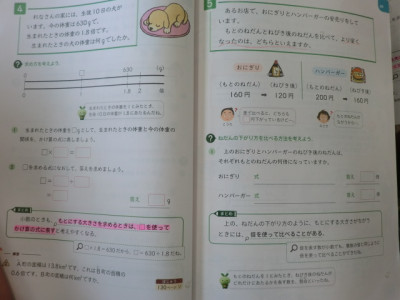 4
れなさんの家には、生後10日の犬が
います。今の体重は630gで、
生まれたときの体重の1.8倍です。
生まれたときの体重は何gでしたか。
求め方を考えましょう。
0
630
(g)
0
1
1.8
(倍)
生まれたときの体重を□gとして、生まれたときの体重と今の体重の
関係を、かけ算の式に表しましょう。
□を求める式になおして、答えを求めましょう。
g
まとめ
小数のときも、もとにする大きさを求めるときは、□を使って
かけ算の式に表すと考えやすくなる。
5
あるお店で、おにぎりとハンバーガーの安売りをして
います。
もとのねだんとねびき後のねだんを比べて、より安く
なったのは、どちらといえますか。
おにぎり
(もとのねだん) (ねびき後)
160円 → 120円
ハンバーガー
(もとのねだん) (ねびき後)
200円 → 160円
ねだんの下がり方を比べる方法を考えよう。
上のおにぎりとハンバーガーのねびき後のねだんは、
それぞれもとのねだんの何倍になっていますか。
おにぎり 式 答え 倍
ハンバーガー 式 答え 倍
まとめ
上の、ねだんの下がり方のように、もとにする大きさがちがう
ときには、倍を使って比べることがある。